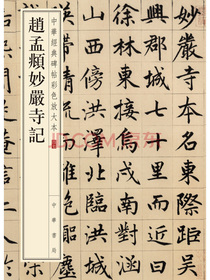 妙嚴寺本名東際距吳
興郡城七十里而近曰
徐林東接烏戍南對涵
山西傍洪澤北臨洪城
中華經典碑帖彩色放大本
趙孟頫妙嚴寺記
中華書局